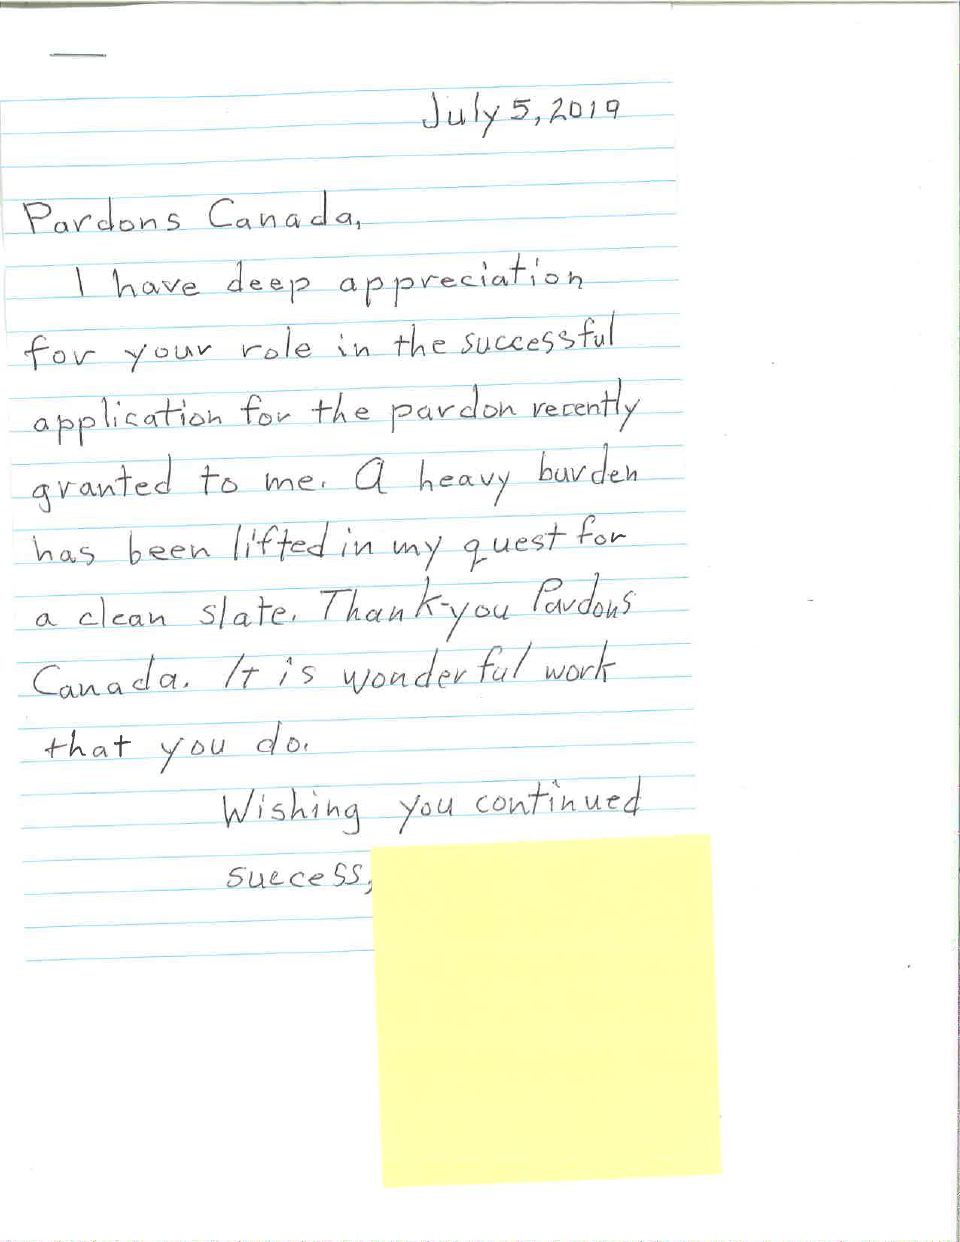 July 5, 2019
Pardons Canada,
I have deep appreciation
for your role in the successful
application for the pardon recently
granted to me. A heavy burden
has been lifted in my quest for
a clean slate. Thank-you Pardons
Canada. It is wonderful work
that you do.
Wishing you continued
success,